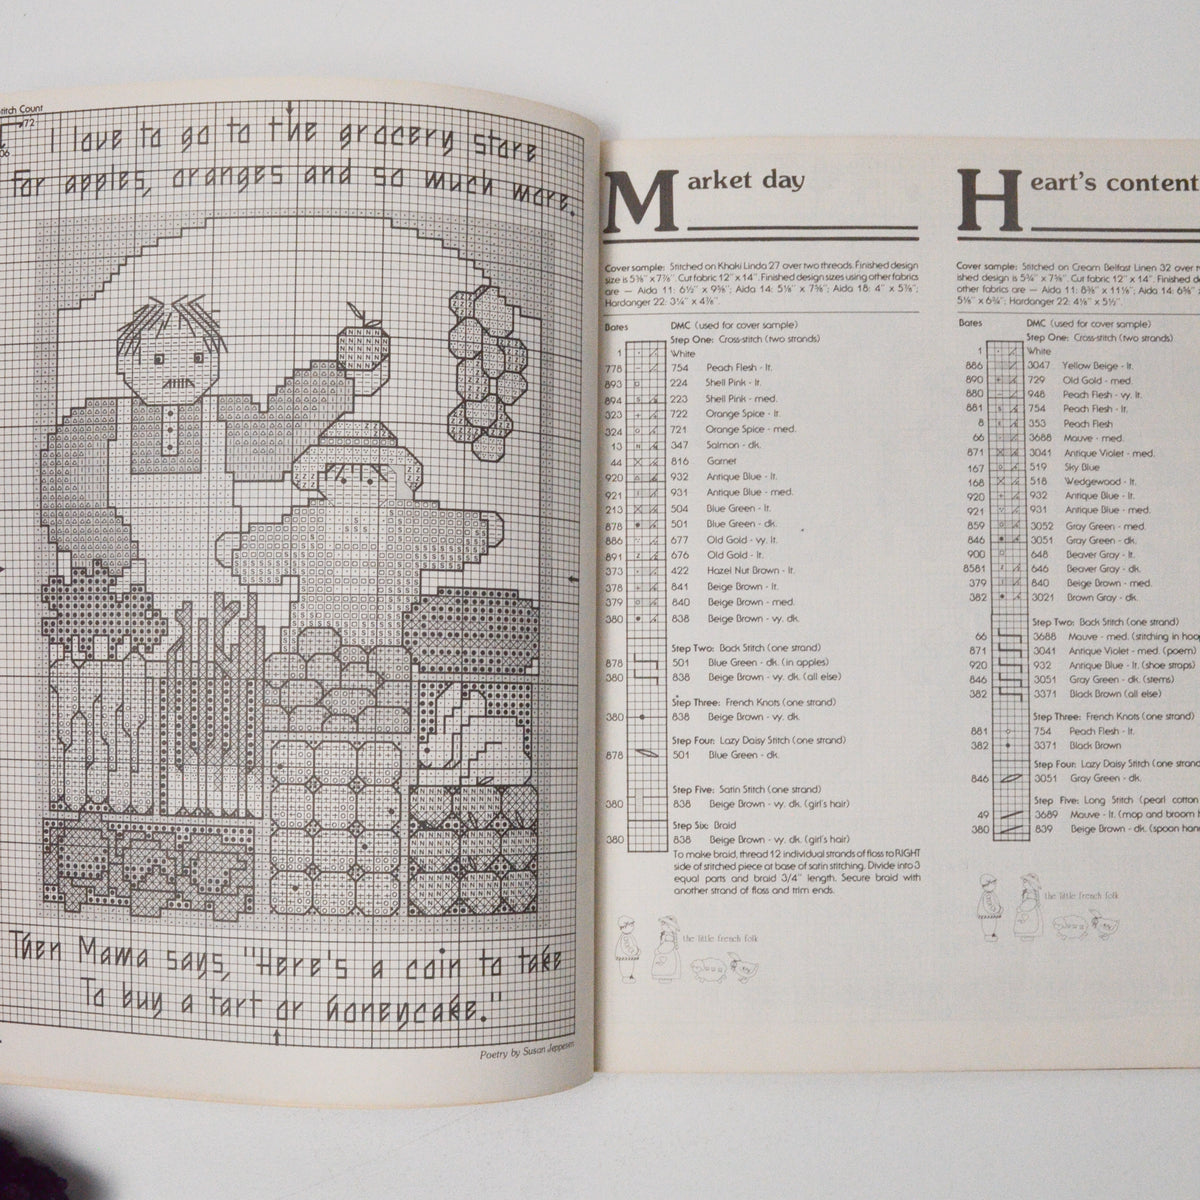 Stitch Count
72
106
I love to go to the grocery store
For apples, oranges and so much more.
Then Mama says, "Here's a coin to take
To buy a tart or honeycake."
Poetry by Susan Jeppesen
Market day
Cover sample: Stitched on Khaki Linda 27 over two threads. Finished design
size is 5⅜" x 7⅞". Cut fabric 12" x 14". Finished design sizes using other fabrics
are — Aida 11: 6½" x 9⅝"; Aida 14: 5⅛" x 7⅝"; Aida 18: 4" x 5⅞";
Hardanger 22: 3¼" x 4⅞".
Bates DMC (used for cover sample)
Step One: Cross-stitch (two strands)
1 White
778 754 Peach Flesh - lt.
893 224 Shell Pink - lt.
894 223 Shell Pink - med.
323 722 Orange Spice - lt.
324 721 Orange Spice - med.
13 347 Salmon - dk.
44 816 Garnet
920 932 Antique Blue - lt.
921 931 Antique Blue - med.
213 504 Blue Green - lt.
878 501 Blue Green - dk.
886 677 Old Gold - vy. lt.
891 676 Old Gold - lt.
373 422 Hazel Nut Brown - lt.
378 841 Beige Brown - lt.
379 840 Beige Brown - med.
380 838 Beige Brown - vy. dk.
Step Two: Back Stitch (one strand)
878 501 Blue Green - dk. (in apples)
380 838 Beige Brown - vy. dk. (all else)
Step Three: French Knots (one strand)
380 838 Beige Brown - vy. dk.
Step Four: Lazy Daisy Stitch (one strand)
878 501 Blue Green - dk.
Step Five: Satin Stitch (one strand)
380 838 Beige Brown - vy. dk. (girl's hair)
Step Six: Braid
380 838 Beige Brown - vy. dk. (girl's hair)
To make braid, thread 12 individual strands of floss to RIGHT
side of stitched piece at base of satin stitching. Divide into 3
equal parts and braid 3/4" length. Secure braid with
another strand of floss and trim ends.
the little french folk
Heart's content
Cover sample: Stitched on Cream Belfast Linen 32 over
ished design is 5¾" x 7". Cut fabric 12" x 14". Finished
other fabrics are — Aida 11: 8⅜" x 11⅛"; Aida 14: 6⅝"
5⅛" x 6¾"; Hardanger 22: 4⅛" x 5½".
Bates DMC (used for cover sample)
Step One: Cross-stitch (two strands)
1 White
886 3047 Yellow Beige - lt.
890 729 Old Gold - med.
880 948 Peach Flesh - vy. lt.
881 754 Peach Flesh - lt.
8 353 Peach Flesh
66 3688 Mauve - med.
871 3041 Antique Violet - med.
167 519 Sky Blue
168 518 Wedgewood - lt.
920 932 Antique Blue - lt.
921 931 Antique Blue - med.
859 3052 Gray Green - med.
846 3051 Gray Green - dk.
900 648 Beaver Gray - lt.
8581 646 Beaver Gray - dk.
379 840 Beige Brown - med.
382 3021 Brown Gray - dk.
Step Two: Back Stitch (one strand)
66 3688 Mauve - med. (stitching in hoop
871 3041 Antique Violet - med. (poem)
920 932 Antique Blue - lt. (shoe straps)
846 3051 Gray Green - dk. (stems)
382 3371 Black Brown (all else)
Step Three: French Knots (one strand)
881 754 Peach Flesh - lt.
382 3371 Black Brown
Step Four: Lazy Daisy Stitch (one strand
846 3051 Gray Green - dk.
Step Five: Long Stitch (pearl cotton
49 3689 Mauve - lt. (mop and broom
380 839 Beige Brown - dk. (spoon
the little french folk